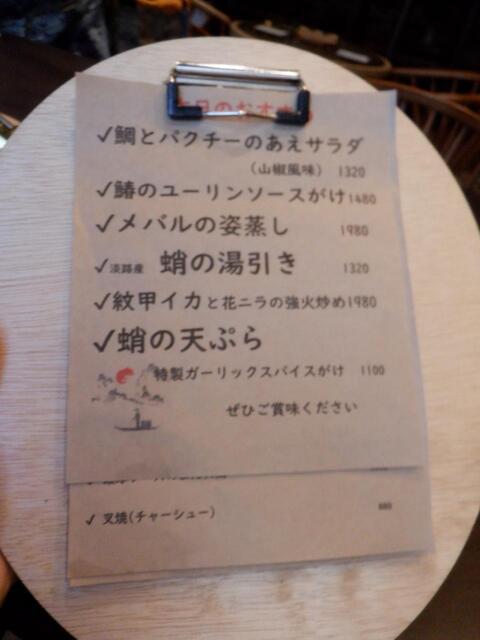 ✓鯛とパクチーのあえサラダ
(山椒風味) 1320
✓鰆のユーリンソースがけ1480
✓メバルの姿蒸し 1980
✓淡路産 蛸の湯引き 1320
✓紋甲イカと花ニラの強火炒め1980
✓蛸の天ぷら
特製ガーリックスパイスがけ 1100
ぜひご賞味ください
✓ 叉焼(チャーシュー) 880